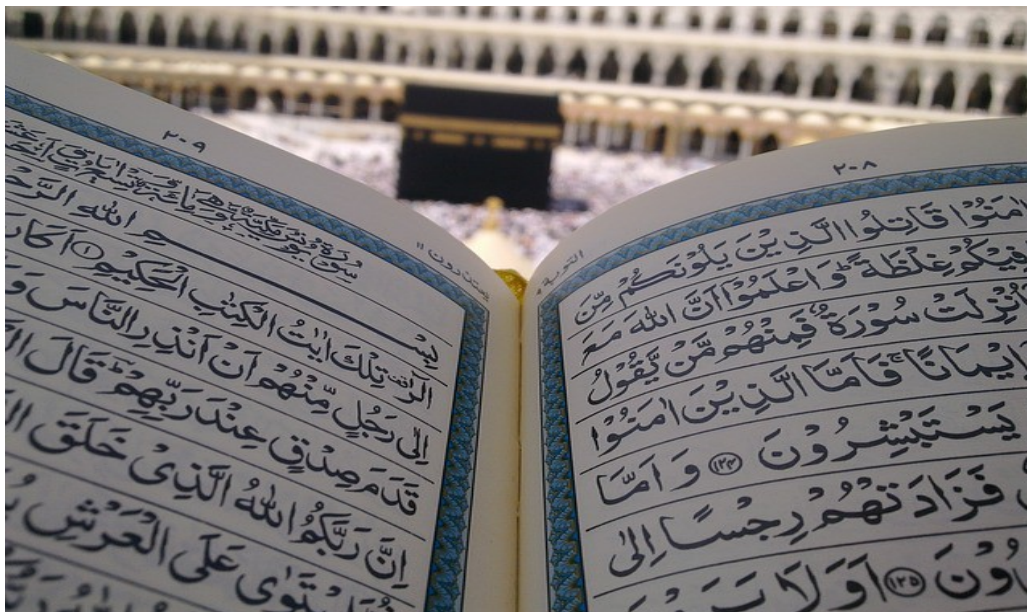 ٢٠٨
التوبة ٩
اٰمَنُوْا قَاتِلُوا الَّذِيْنَ يَلُوْنَكُمْ مِّنَ
فِيْكُمْ غِلْظَةً ؕ وَاعْلَمُوْۤا اَنَّ اللّٰهَ مَعَ
اُنْزِلَتْ سُوْرَةٌ فَمِنْهُمْ مَّنْ يَّقُوْلُ
اِيْمَانًا ۚ فَاَمَّا الَّذِيْنَ اٰمَنُوْا
يَسْتَبْشِرُوْنَ ﴿١٢٤﴾ وَاَمَّا
فَزَادَتْهُمْ رِجْسًا اِلٰى
﴿١٢٥﴾ اَوَلَا
٢٠٩
يعتذرون ١١
سُوْرَةُ يُوْنُسَ مَكِّيَّةٌ وَّهِيَ
بِسْمِ اللّٰهِ
الٓرٰ تِلْكَ اٰيٰتُ الْكِتٰبِ الْحَكِيْمِ ﴿١﴾
اِلٰى رَجُلٍ مِّنْهُمْ اَنْ اَنْذِرِ النَّاسَ
قَدَمَ صِدْقٍ عِنْدَ رَبِّهِمْ ؕ قَالَ
اِنَّ رَبَّكُمُ اللّٰهُ الَّذِيْ خَلَقَ
عَلَى الْعَرْشِ